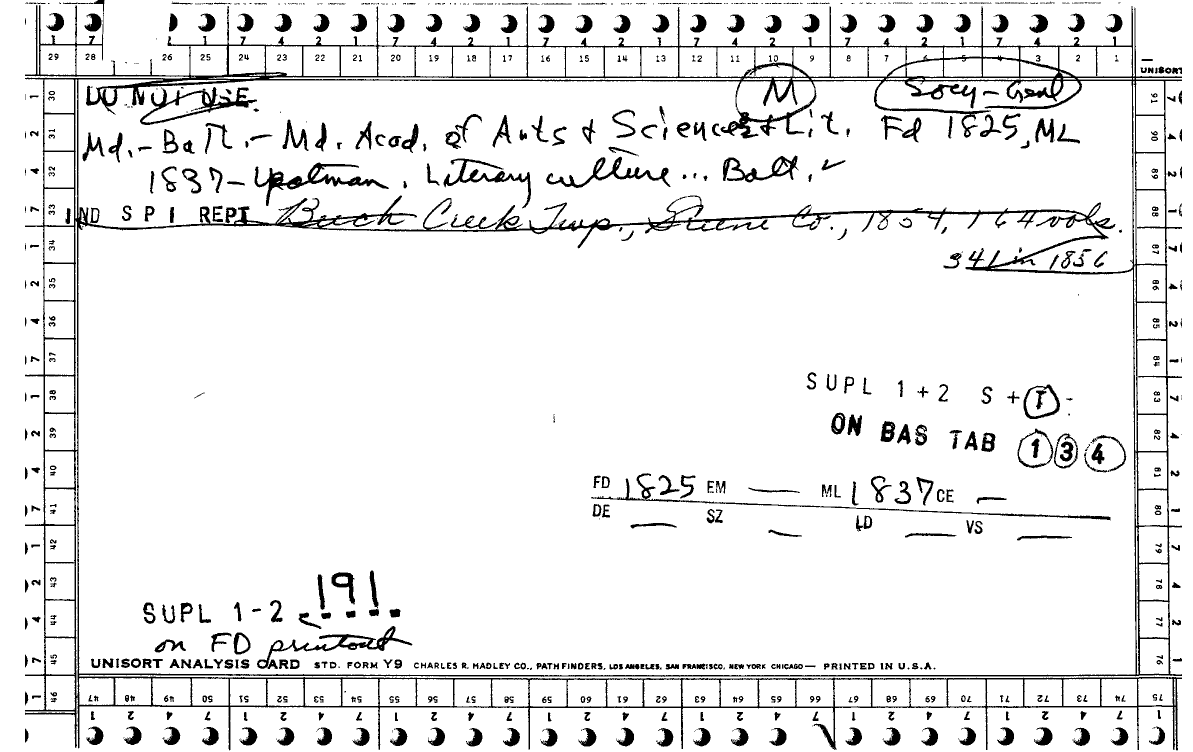 1 7 7 4 2 1 7 4 2 1 7 4 2 1 7 4 2 1 7 4 2 1 7 4 2 1
29 28 26 25 24 23 22 21 20 19 18 17 16 15 14 13 12 11 10 9 8 7 6 5 4 3 2 1
UNISORT
DO NOT USE. M Socy-Genl
Md.-Balt.- Md. Acad. of Arts & Sciences & Lit. Fd 1825, ML
1837- Literary culture... Balt.
IND SPI REPT Creek Twp., Greene Co., 1854, 164 vols.
341 in 1856
SUPL 1+2 S+T-
ON BAS TAB 1 3 4
FD 1825 EM — ML 1837 CE —
DE — SZ — LD — VS —
SUPL 1-2 191.
on FD printout
UNISORT ANALYSIS CARD STD. FORM Y9 CHARLES R. HADLEY CO., PATHFINDERS, LOS ANGELES, SAN FRANCISCO, NEW YORK CHICAGO — PRINTED IN U.S.A.
47 48 49 50 51 52 53 54 55 56 57 58 59 60 61 62 63 64 65 66 67 68 69 70 71 72 73 74 75
1 2 4 7 1 2 4 7 1 2 4 7 1 2 4 7 1 2 4 7 1 2 4 7 1 2 4 7 1